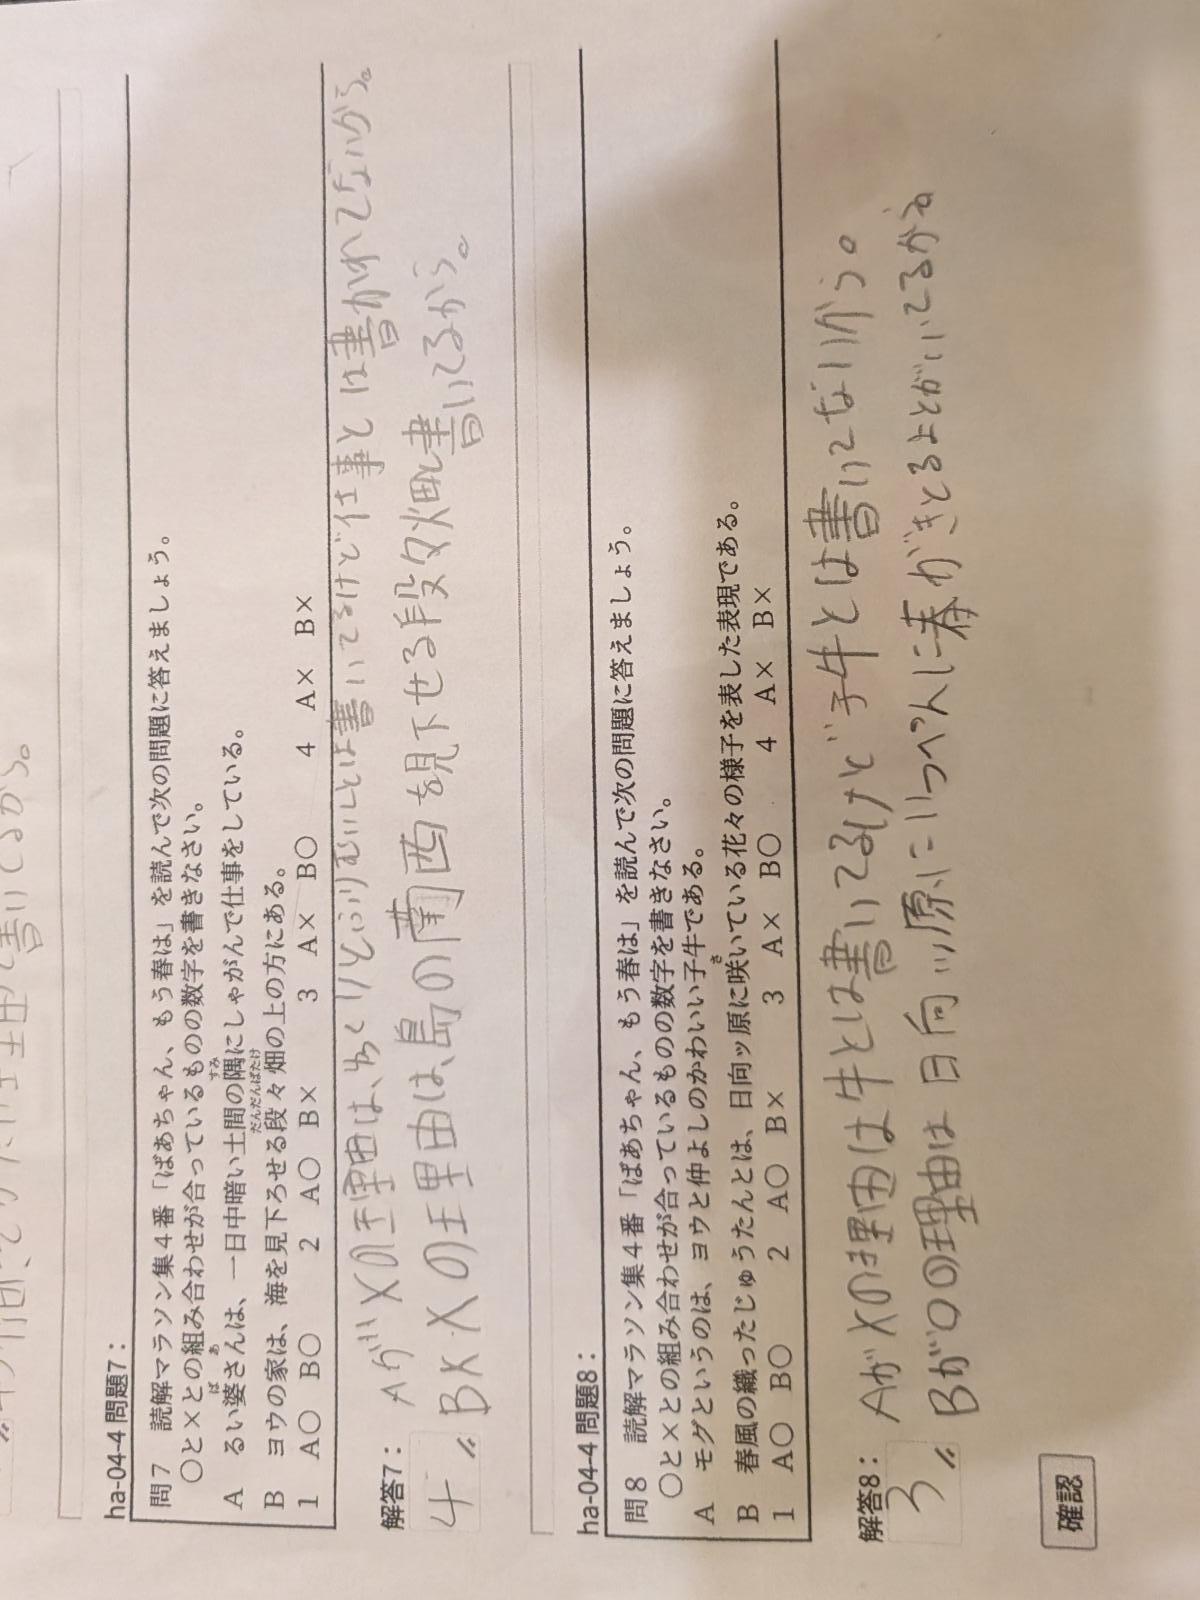 書いてるから。
ha-04-4 問題7：
問７　読解マラソン集４番「ばあちゃん、もう春は」を読んで次の問題に答えましょう。
〇と×との組み合わせが合っているものの数字を書きなさい。
A　るい婆さんは、一日中暗い土間の隅にしゃがんで仕事をしている。
B　ヨウの家は、海を見下ろせる段々畑の上の方にある。
1　A〇　B〇　2　A〇　B×　3　A×　B〇　4　A×　B×
解答7：
4
Aが×の理由は、
書いてるけど仕事とは書かれてないから。
B××の理由は、島の南西を見下せる段々畑と書いてるから。
ha-04-4 問題8：
問８　読解マラソン集４番「ばあちゃん、もう春は」を読んで次の問題に答えましょう。
〇と×との組み合わせが合っているものの数字を書きなさい。
A　モグというのは、ヨウと仲よしのかわいい子牛である。
B　春風の織ったじゅうたんとは、日向ッ原に咲いている花々の様子を表した表現である。
1　A〇　B〇　2　A〇　B×　3　A×　B〇　4　A×　B×
解答8：
3
Aが×の理由は牛とは書いてるけど子牛とは書いてないから。
Bが〇〇の理由は日向ッ原にいっぺんに春がきとるよとかいてるから
確認